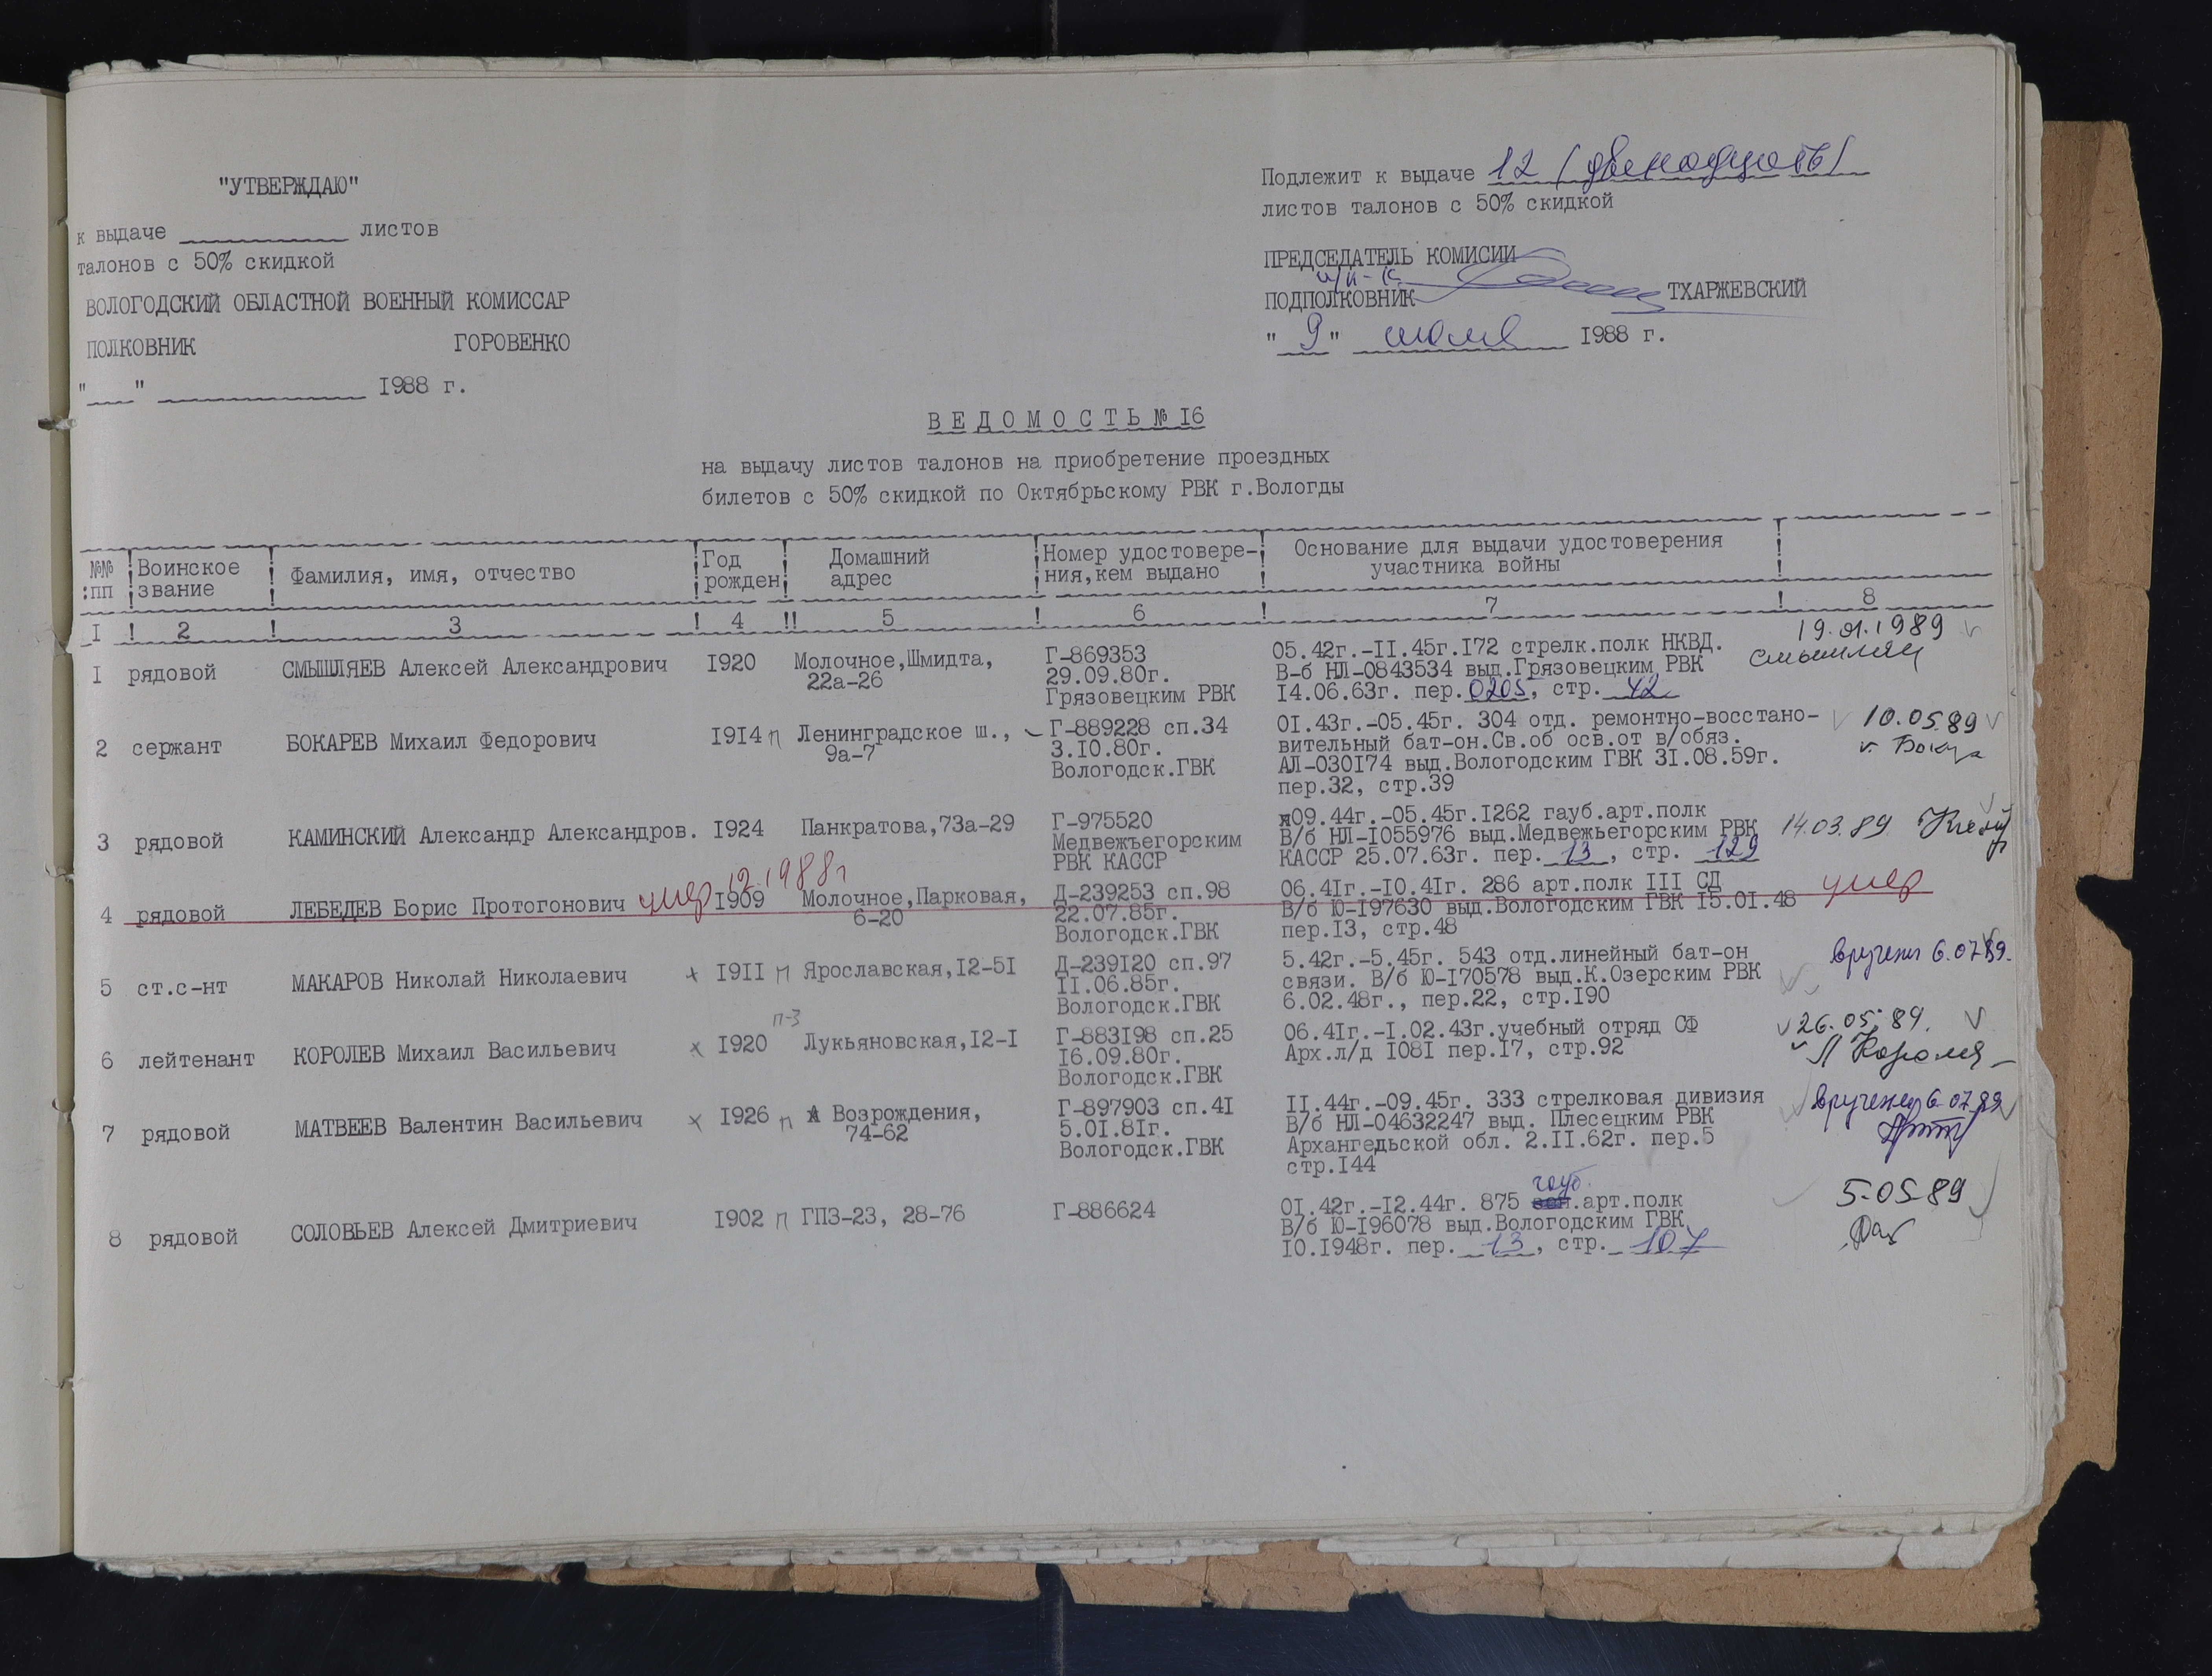 "УТВЕРЖДАЮ"
к выдаче ____________ листов
талонов с 50% скидкой
ВОЛОГОДСКИЙ ОБЛАСТНОЙ ВОЕННЫЙ КОМИССАР
ПОЛКОВНИК ГОРОВЕНКО
"___" ______________ 1988 г.
Подлежит к выдаче 12 /двенадцать/
листов талонов с 50% скидкой
ПРЕДСЕДАТЕЛЬ КОМИСИИ
п/п-к
ПОДПОЛКОВНИК ТХАРЖЕВСКИЙ
"9" июля 1988 г.
ВЕДОМОСТЬ № 16
на выдачу листов талонов на приобретение проездных
билетов с 50% скидкой по Октябрьскому РВК г.Вологды
№№ пп ! Воинское звание ! Фамилия, имя, отчество ! Год рожден ! Домашний адрес ! Номер удостовере-ния,кем выдано ! Основание для выдачи удостоверения участника войны !
1 ! 2 ! 3 ! 4 !! 5 ! 6 ! 7 ! 8
1 рядовой СМЫШЛЯЕВ Алексей Александрович 1920 Молочное,Шмидта, Г-869353 05.42г.-11.45г.172 стрелк.полк НКВД. 19.01.1989
22а-26 29.09.80г. В-б НЛ-0843534 выд.Грязовецким РВК
Грязовецким РВК 14.06.63г. пер.0205, стр. 42
2 сержант БОКАРЕВ Михаил Федорович 1914 п Ленинградское ш., Г-889228 сп.34 01.43г.-05.45г. 304 отд. ремонтно-восстано- 10.05.89
9а-7 3.10.80г. вительный бат-он.Св.об осв.от в/обяз.
Вологодск.ГВК АЛ-030174 выд.Вологодским ГВК 31.08.59г.
пер.32, стр.39
3 рядовой КАМИНСКИЙ Александр Александров. 1924 Панкратова,73а-29 Г-975520 09.44г.-05.45г.1262 гауб.арт.полк
Медвежъегорским В/б НЛ-1055976 выд.Медвежьегорским РВК 14.03.89
РВК КАССР КАССР 25.07.63г. пер. 13, стр. 129
умер 12.1988г
4 рядовой ЛЕБЕДЕВ Борис Протогонович 1909 Молочное,Парковая, Д-239253 сп.98 06.41г.-10.41г. 286 арт.полк III СД умер
6-20 22.07.85г. В/б Ю-197630 выд.Вологодским ГВК 15.01.48
Вологодск.ГВК пер.13, стр.48
5 ст.с-нт МАКАРОВ Николай Николаевич 1911 п Ярославская,12-51 Д-239120 сп.97 5.42г.-5.45г. 543 отд.линейный бат-он 6.07.89.
11.06.85г. связи. В/б Ю-170578 выд.К.Озерским РВК
Вологодск.ГВК 6.02.48г., пер.22, стр.190
п-3
6 лейтенант КОРОЛЕВ Михаил Васильевич 1920 Лукьяновская,12-1 Г-883198 сп.25 06.41г.-1.02.43г.учебный отряд СФ 26.05.89.
16.09.80г. Арх.л/д 1081 пер.17, стр.92
Вологодск.ГВК
7 рядовой МАТВЕЕВ Валентин Васильевич 1926 п Возрождения, Г-897903 сп.41 11.44г.-09.45г. 333 стрелковая дивизия 6.07.89
74-62 5.01.81г. В/б НЛ-04632247 выд. Плесецким РВК
Вологодск.ГВК Архангельской обл. 2.11.62г. пер.5
стр.144
гауб.
8 рядовой СОЛОВЬЕВ Алексей Дмитриевич 1902 п ГПЗ-23, 28-76 Г-886624 01.42г.-12.44г. 875 зен.арт.полк 5.05.89
В/б Ю-196078 выд.Вологодским ГВК
10.1948г. пер. 13, стр. 107